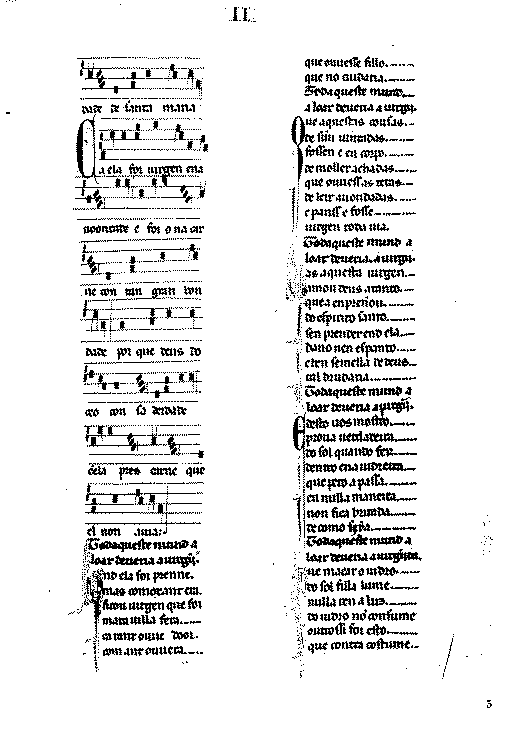 II
dade de santa maria
Ca ela foi uirgen ena
uoontade e foi o na car
ne con tan gran bon
dade por que deus do
ceo con sa deidade
ela pres carne que
el non auia.
Toda queste mund a
loar deueria a uirgij.
E ela foi prenne.
mas como ant en.
ficou uirgen que foi
marauilla fera.
ca tant ouue door.
com ant ouuera.
que ouuesse fillo.
que no cudaria.
Toda queste mund.
a loar deueria a uirgij.
Que aquestas cousas.
de ssũu uiuudas.
fossen e en corpo.
de moller achadas.
que ouuessas tetas
de leit auondadas.
e pariss e fosse
uirgen toda uia.
Toda queste mund a
loar deueria. a uirgij.
as aquesta uirgen.
amou deus atanto.
que a enprennou.
do espirito santo.
sen prender end ela.
dano nen espanto.
e ben semella de deus.
tal bruaria.
Toda queste mund a
loar deueria a uirgij.
E desto uos mostro.
proua uerdadeira.
do sol quando fer.
dentro ena uidreira.
que pero a passa.
en nulla maneira.
non fica britada.
de como sija.
Toda queste mund a
loar deueria a uirgen.
que macar o uidro.
do sol filla lume.
nulla ren a luz.
do uidro nõ consume
outrossi foi esto.
que contra costume.
5